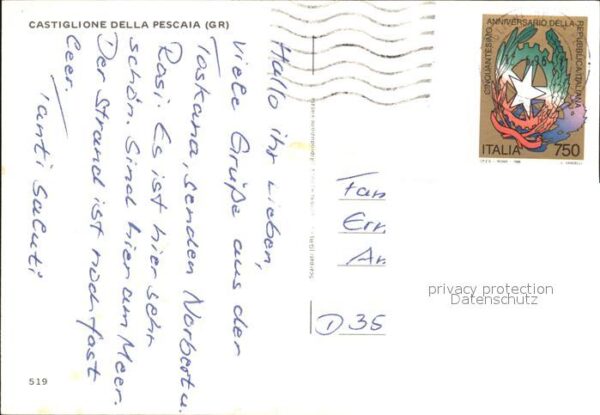 CASTIGLIONE DELLA PESCAIA (GR)
Hallo ihr Lieben,
viele Grüße aus der
Toskana, senden Norbert u.
Rosi. Es ist hier sehr
schön. Sind hier am Meer.
Der Strand ist noch fast
leer.
Tanti saluti
519
CINQUANTESIMO ANNIVERSARIO DELLA REPUBBLICA ITALIANA
ITALIA 750
Fam
Err
An
D 35
privacy protection
Datenschutz